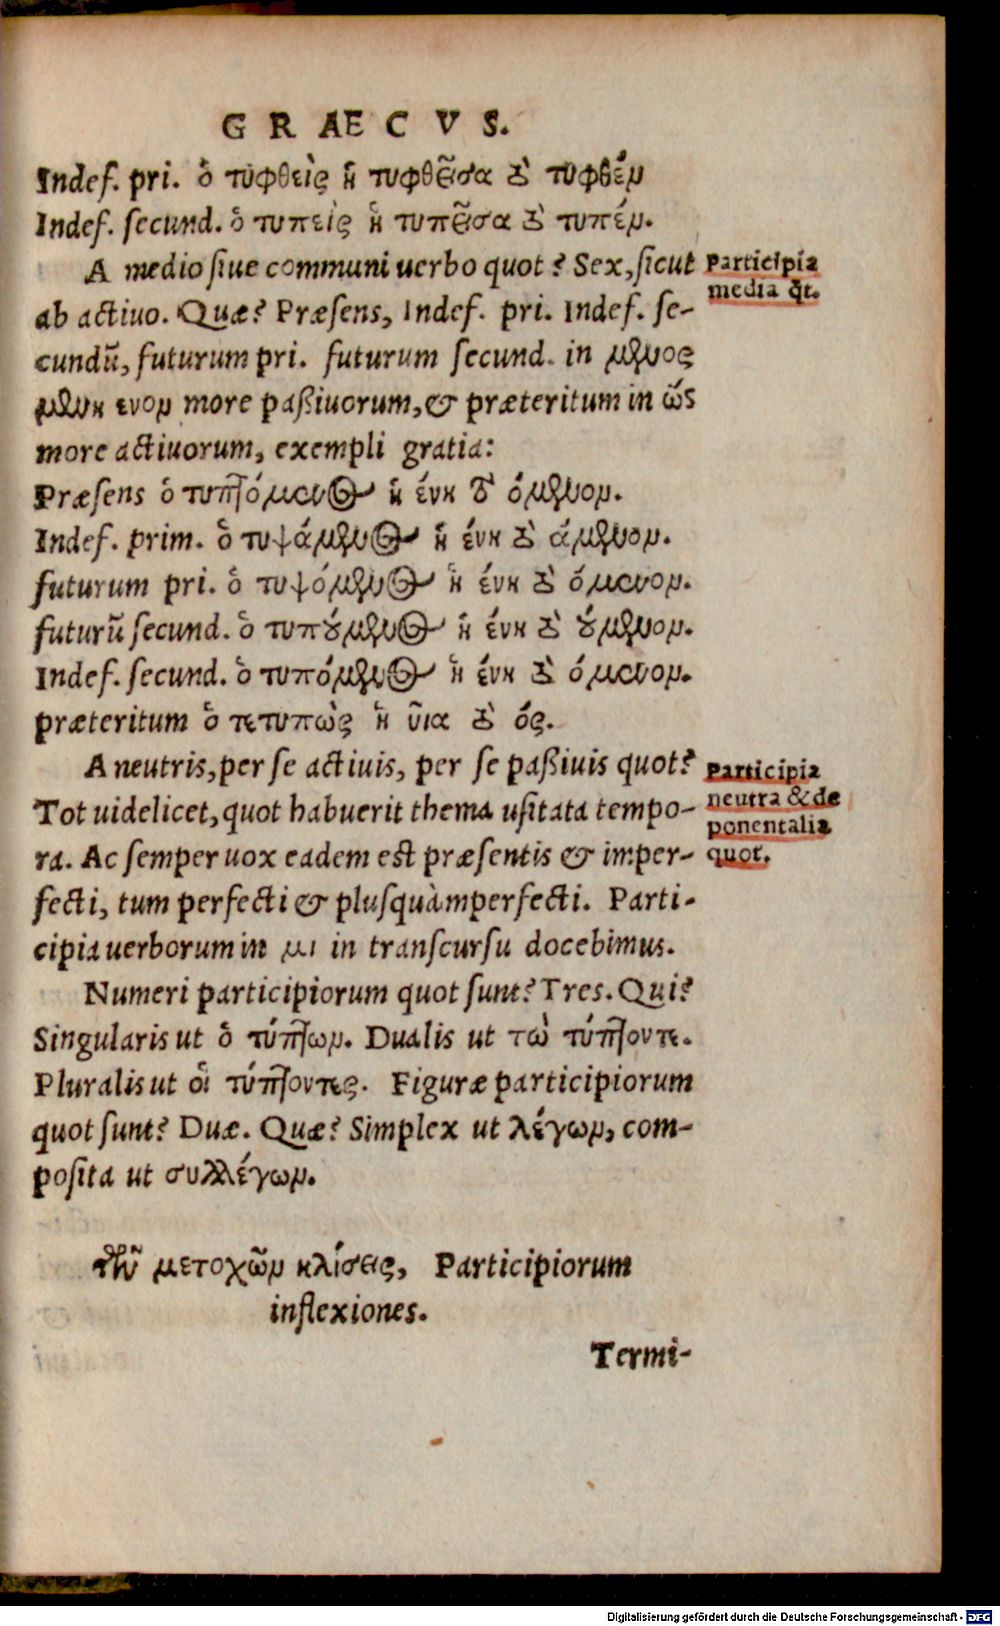 GRAECVS.
Indef. pri. ὁ τυφθεὶς ἡ τυφθεῖσα τὸ τυφθέν
Indef. secund. ὁ τυπεὶς ἡ τυπεῖσα τὸ τυπέν.
A medio siue communi uerbo quot? Sex, sicut
ab actiuo. Quæ? Præsens, Indef. pri. Indef. se-
cundū, futurum pri. futurum secund. in μενος
μενη ενον more paßiuorum, & præteritum in ὼς
more actiuorum, exempli gratia:
Præsens ὁ τυπτόμενος ἡ ένη τὸ όμενον.
Indef. prim. ὁ τυψάμενος ἡ ένη τὸ άμενον.
futurum pri. ὁ τυψόμενος ἡ ένη τὸ όμενον.
futurū secund. ὁ τυπούμενος ἡ ένη τὸ ούμενον.
Indef. secund. ὁ τυπόμενος ἡ ένη τὸ όμενον.
præteritum ὁ τετυπὼς ἡ ῦια τὸ ός.
A neutris, per se actiuis, per se paßiuis quot?
Tot uidelicet, quot habuerit thema usitata tempo-
ra. Ac semper uox eadem est præsentis & imper-
fecti, tum perfecti & plusquàmperfecti. Parti-
cipia uerborum in μι in transcursu docebimus.
Numeri participiorum quot sunt? Tres. Qui?
Singularis ut ὁ τύπτων. Dualis ut τὼ τύπτοντε.
Pluralis ut οἱ τύπτοντες. Figuræ participiorum
quot sunt? Duæ. Quæ? Simplex ut λέγων, com-
posita ut συλλέγων.
τῶν μετοχῶν κλίσεις, Participiorum
inflexiones.
Termi-
Participia
media qt.
Participia
neutra & de
ponentalia
quot.
Digitalisierung gefördert durch die Deutsche Forschungsgemeinschaft - DFG